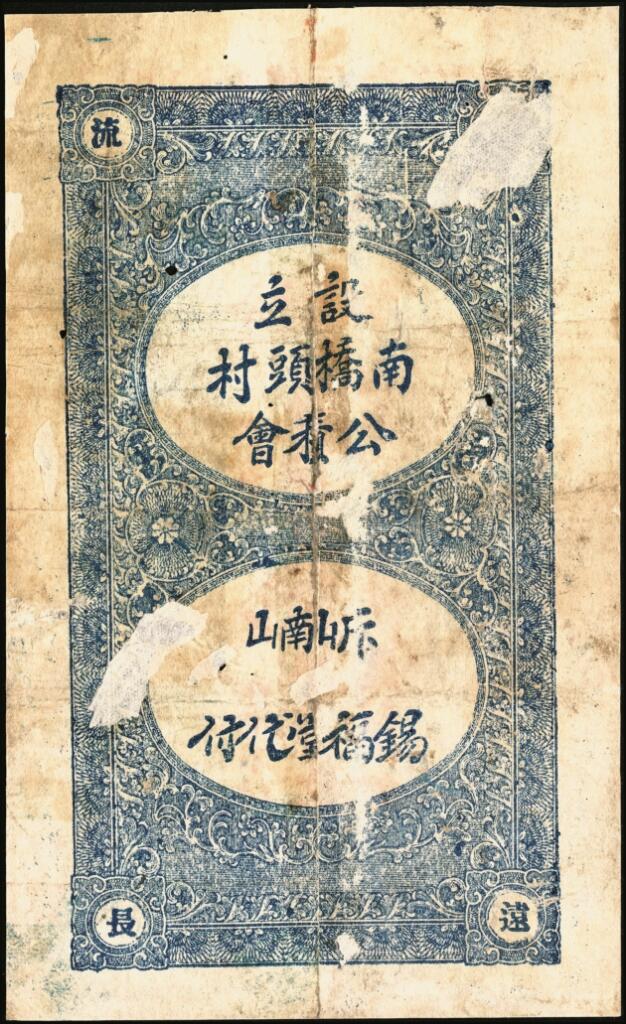 流
設立
南橋頭村
公積會
斥山南山
錫福堂代付
遠
長